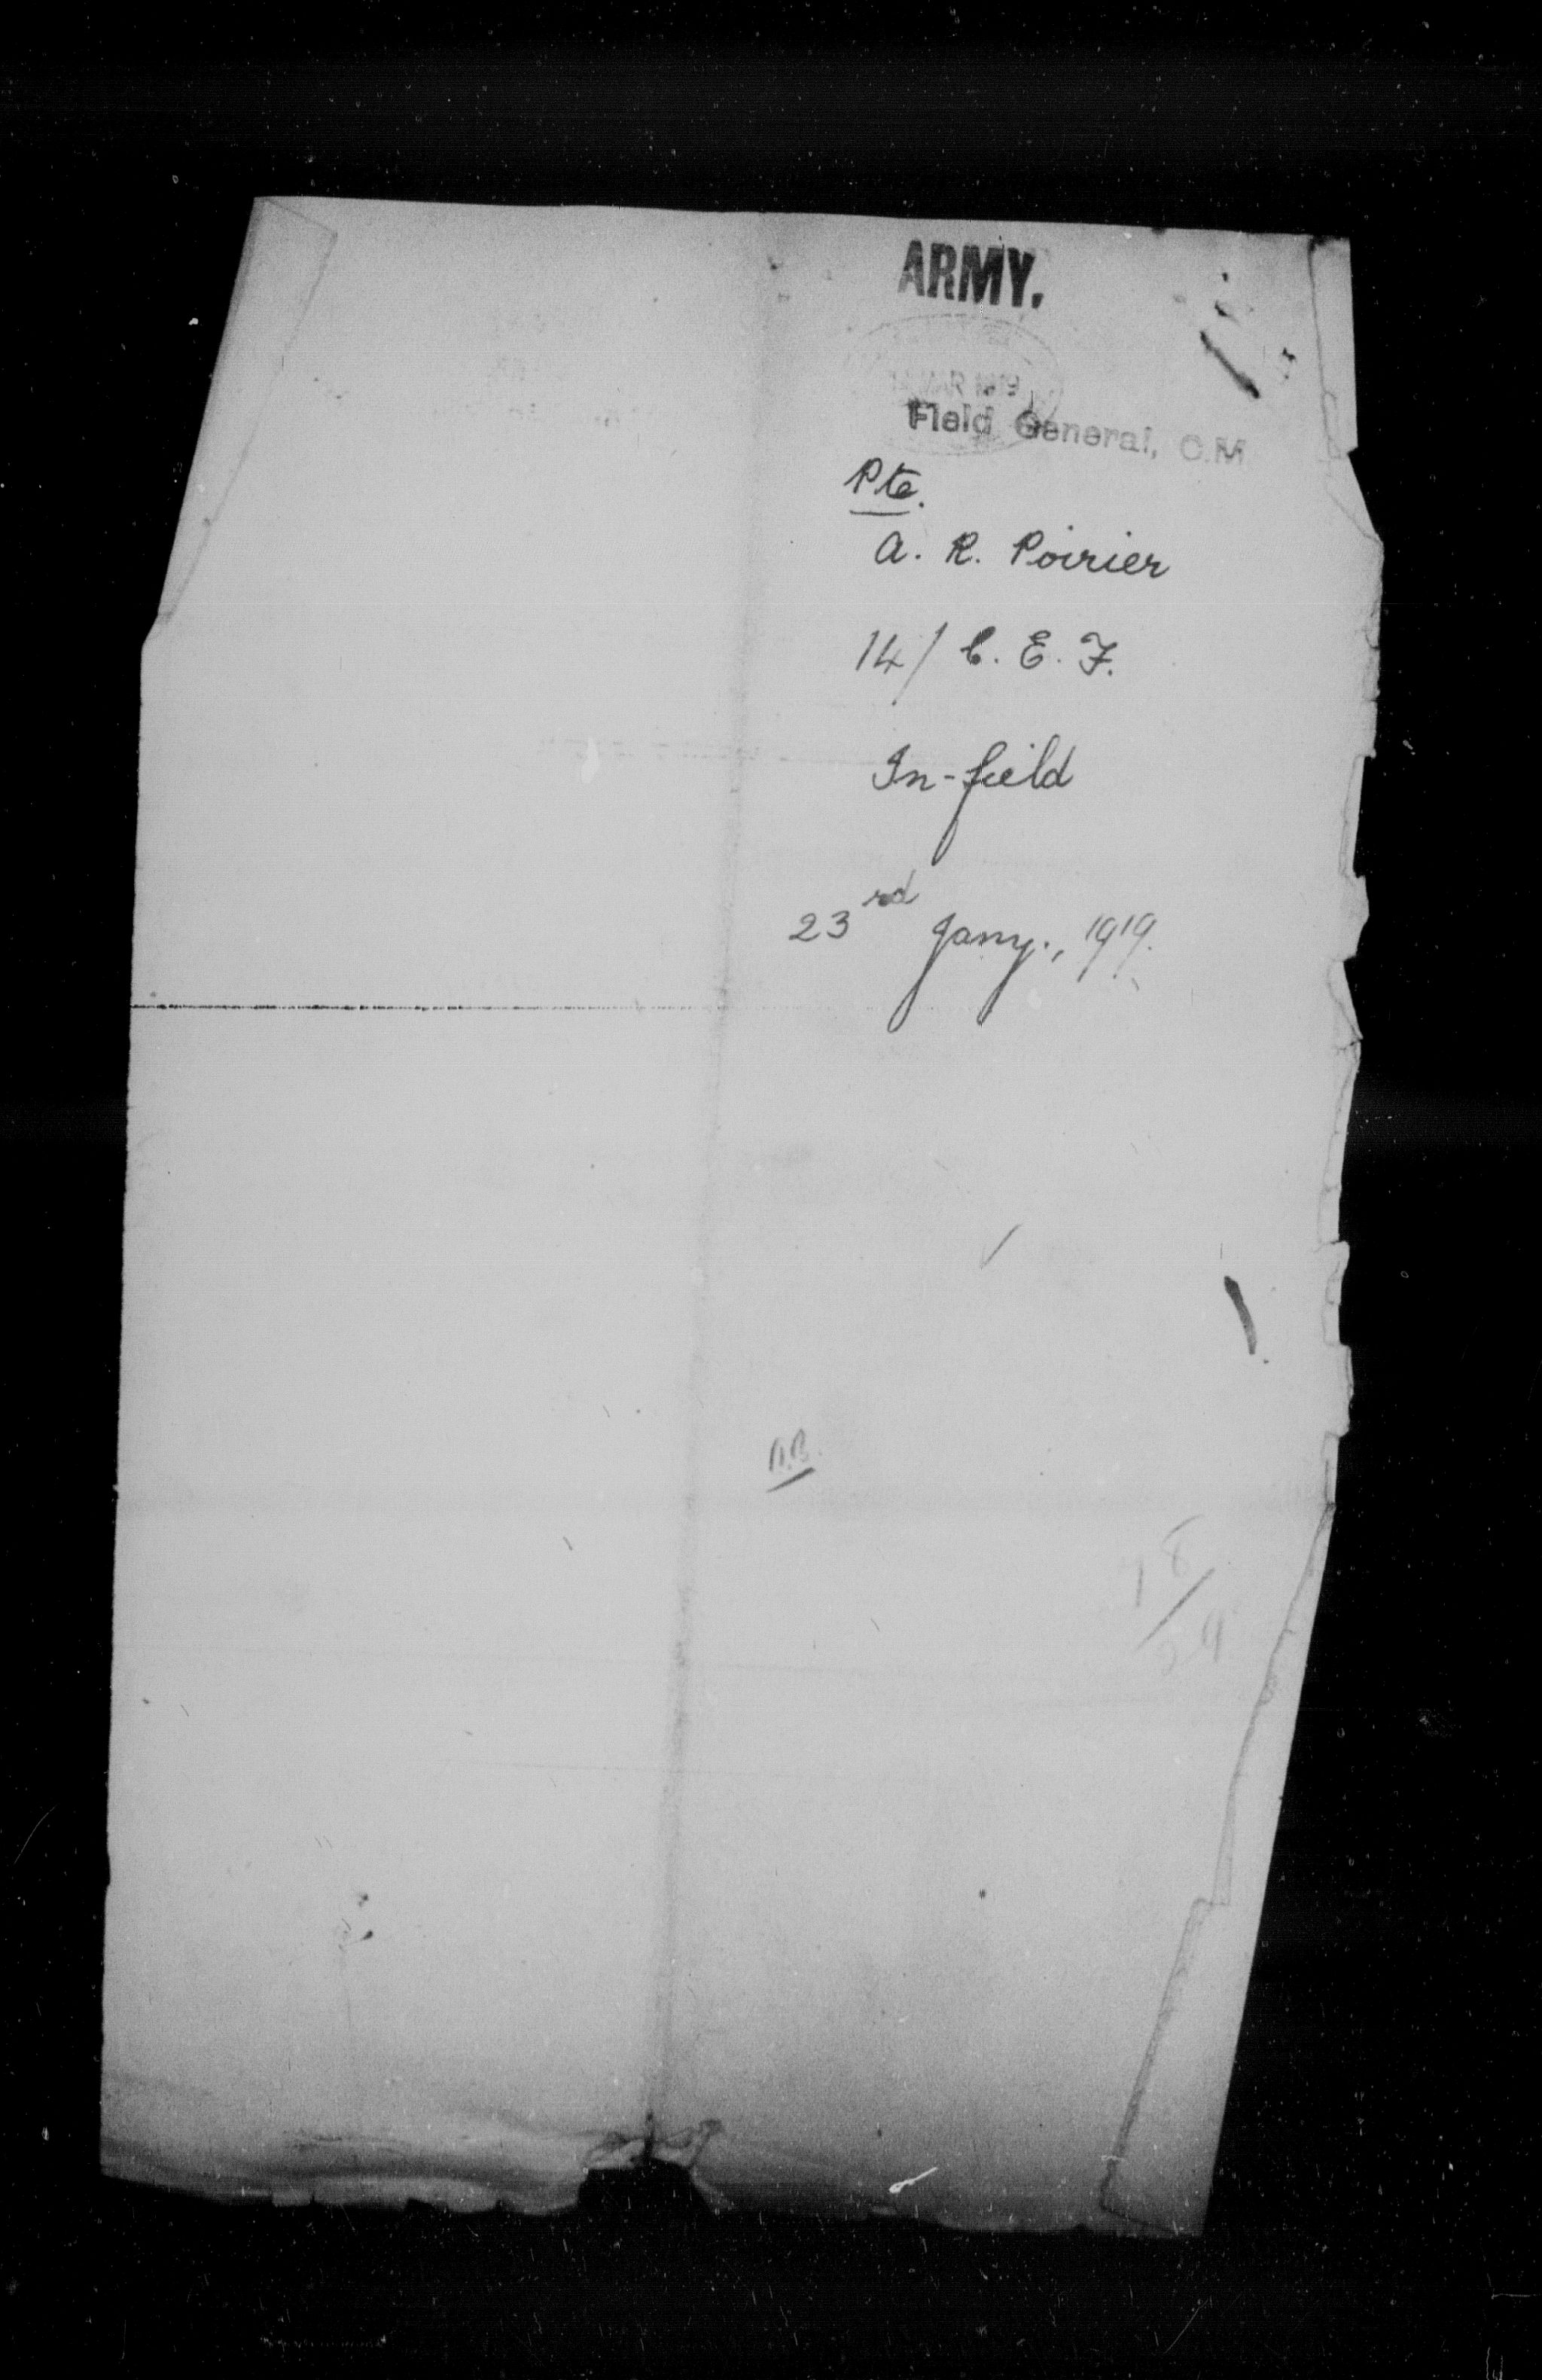 ARMY.
MAR 1919
Field General, C.M
Pte.
A. R. Poirier
14/ C. E. F.
In-field
23rd Jany., 1919.